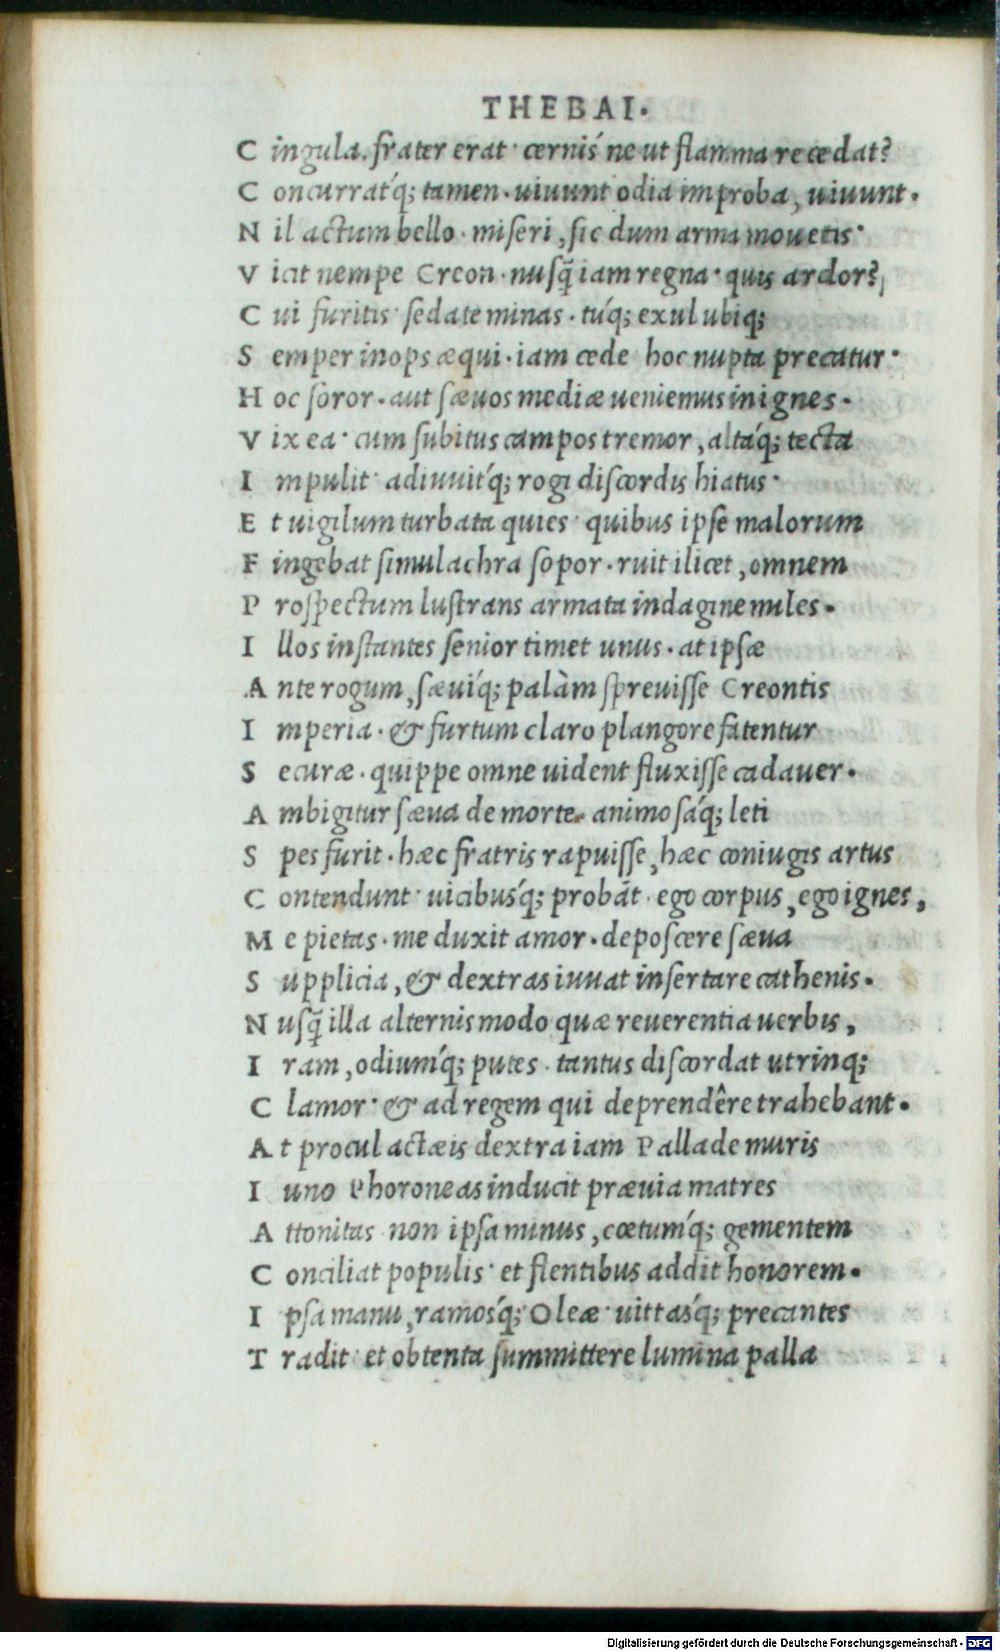 THEBAI.
C ingula. frater erat· cernis' ne ut flamma recedat?
C oncurrat'q; tamen· uiuunt odia improba, uiuunt.
N il actum bello· miseri, sic dum arma mouetis·
V icit nempe Creon· nusq̃ iam regna· quis ardor?
C ui furitis· sedate minas· tu'q; exul ubiq;
S emper inops æqui· iam cede hoc nupta precatur·
H oc soror. aut sæuos mediæ ueniemus in ignes.
V ix ea· cum subitus campos tremor, alta'q; tecta
I mpulit· adiuuit'q; rogi discordis hiatus·
E t uigilum turbata quies· quibus ipse malorum
F ingebat simulachra sopor· ruit ilicet, omnem
P rospectum lustrans armata indagine miles.
I llos instantes senior timet unus· at ipsæ
A nte rogum, sæui'q; palàm spreuisse Creontis
I mperia· & furtum claro plangore fatentur
S ecuræ· quippe omne uident fluxisse cadauer.
A mbigitur sæua de morte. animosa'q; leti
S pes furit· hæc fratris rapuisse, hæc coniugis artus
C ontendunt· uicibus'q; probãt· ego corpus, ego ignes,
M e pietas· me duxit amor. deposcere sæua
S upplicia, & dextras iuuat insertare cathenis.
N usq̃ illa alternis modo quæ reuerentia uerbis,
I ram, odium'q; putes· tantus discordat utrinq;
C lamor· & ad regem qui deprendêre trahebant.
A t procul actæis dextra iam Pallade muris
I uno Phoroneas inducit præuia matres
A ttonitas· non ipsa minus, cœtum'q; gementem
C onciliat populis· et flentibus addit honorem.
I psa manu, ramos'q; Oleæ· uittas'q; precantes
T radit· et obtenta summittere lumina palla
Digitalisierung gefördert durch die Deutsche Forschungsgemeinschaft - DFG